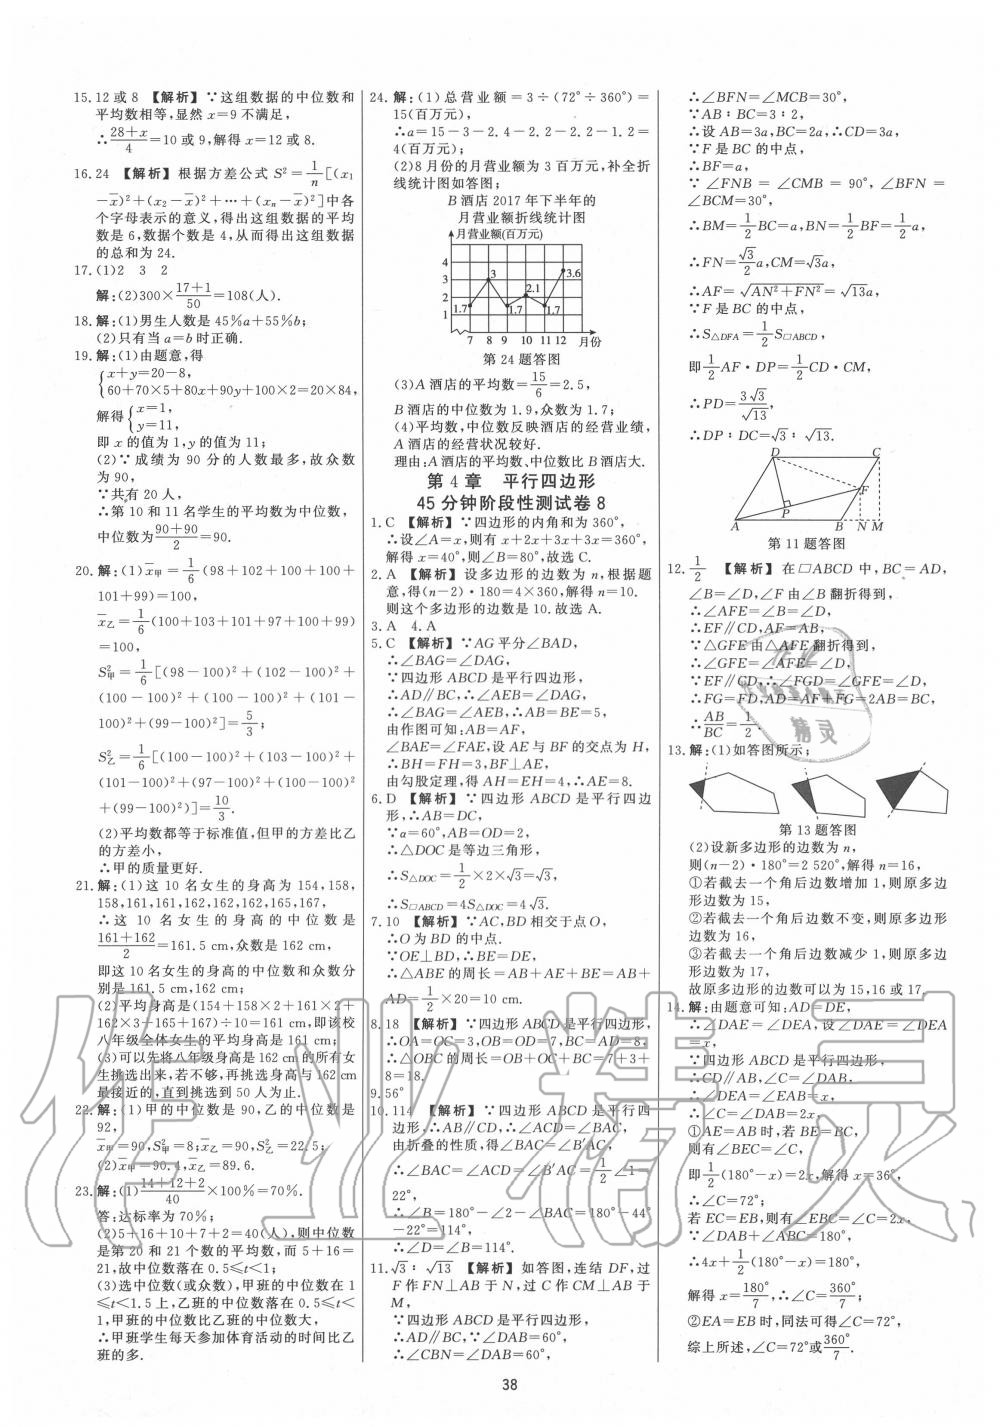 15.12或8 【解析】∵这组数据的中位数和
平均数相等,显然x=9不满足,
∴(28+x)/4=10或9,解得x=12或8.
16.24 【解析】根据方差公式S²=1/n[(x₁
-x̄)²+(x₂-x̄)²+…+(xₙ-x̄)²]中各
个字母表示的意义,得出这组数据的平均
数是6,数据个数是4,从而得出这组数据
的总和为24.
17.(1)2 3 2
解:(2)300×(17+1)/50=108(人).
18.解:(1)男生人数是45%a+55%b;
(2)只有当a=b时正确.
19.解:(1)由题意,得
{x+y=20-8,
60+70×5+80x+90y+100×2=20×84,
解得{x=1,
y=11,
即x的值为1,y的值为11;
(2)∵成绩为90分的人数最多,故众数
为90,
∵共有20人,
∴第10和11名学生的平均数为中位数,
中位数为(90+90)/2=90.
20.解:(1)x̄甲=1/6(98+102+100+100+
101+99)=100,
x̄乙=1/6(100+103+101+97+100+99)
=100,
S²甲=1/6[(98-100)²+(102-100)²+
(100-100)²+(100-100)²+(101-
100)²+(99-100)²]=5/3;
S²乙=1/6[(100-100)²+(103-100)²+
(101-100)²+(97-100)²+(100-100)²
+(99-100)²]=10/3.
(2)平均数都等于标准值,但甲的方差比乙
的方差小,
∴甲的质量更好.
21.解:(1)这10名女生的身高为154,158,
158,161,161,162,162,162,165,167,
∴这10名女生的身高的中位数是
(161+162)/2=161.5 cm,众数是162 cm,
即这10名女生的身高的中位数和众数分
别是161.5 cm,162 cm;
(2)平均身高是(154+158×2+161×2+
162×3+165+167)÷10=161 cm,即该校
八年级全体女生的平均身高是161 cm;
(3)可以先将八年级身高是162 cm的所有女
生挑选出来,若不够,再挑选身高与162 cm
最接近的,直到挑选到50人为止.
22.解:(1)甲的中位数是90,乙的中位数是
92,
x̄甲=90,S²甲=8;x̄乙=90,S²乙=22.5;
(2)x̄甲=90.4,x̄乙=89.6.
23.解:(1)(14+12+2)/40×100%=70%.
答:达标率为70%;
(2)5+16+10+7+2=40(人),则中位数
是第20和21个数的平均数,而5+16=
21,故中位数落在0.5≤t<1;
(3)选中位数(或众数),甲班的中位数在1
≤t<1.5上,乙班的中位数落在0.5≤t<
1,甲班的中位数比乙班的中位数大,
∴甲班学生每天参加体育活动的时间比乙
班的多.
24.解:(1)总营业额=3÷(72°÷360°)=
15(百万元),
∴a=15-3-2.4-2.2-2.2-1.2=
4(百万元);
(2)8月份的月营业额为3百万元,补全折
线统计图如答图:
B酒店2017年下半年的
月营业额折线统计图
月营业额(百万元)
4
3
2
1
1.7 3 1.7 2.1 1.7 3.6
7 8 9 10 11 12 月份
第24题答图
(3)A酒店的平均数=15/6=2.5,
B酒店的中位数为1.9,众数为1.7;
(4)平均数,中位数反映酒店的经营业绩,
A酒店的经营状况较好.
理由:A酒店的平均数、中位数比B酒店大.
第4章 平行四边形
45分钟阶段性测试卷8
1.C 【解析】∵四边形的内角和为360°,
∴设∠A=x,则有x+2x+3x+3x=360°,
解得x=40°,则∠B=80°,故选C.
2.A 【解析】设多边形的边数为n,根据题
意,得(n-2)·180=4×360,解得n=10.
则这个多边形的边数是10.故选A.
3.A 4.A
5.C 【解析】∵AG平分∠BAD,
∴∠BAG=∠DAG,
∵四边形ABCD是平行四边形,
∴AD∥BC,∴∠AEB=∠DAG,
∴∠BAG=∠AEB,∴AB=BE=5,
由作图可知:AB=AF,
∠BAE=∠FAE,设AE与BF的交点为H,
∴BH=FH=3,BF⊥AE,
由勾股定理,得AH=EH=4,∴AE=8.
6.D 【解析】∵四边形ABCD是平行四边
形,∴AB=DC,
∵α=60°,AB=OD=2,
∴△DOC是等边三角形,
∴S△DOC=1/2×2×√3=√3,
∴S□ABCD=4S△DOC=4√3.
7.10 【解析】∵AC,BD相交于点O,
∴O为BD的中点.
∵OE⊥BD,∴BE=DE,
∴△ABE的周长=AB+AE+BE=AB+
AD=1/2×20=10 cm.
8.18 【解析】∵四边形ABCD是平行四边形,
∴OA=OC=3,OB=OD=7,BC=AD=8,
∴△OBC的周长=OB+OC+BC=7+3+
8=18.
9.56°
10.114 【解析】∵四边形ABCD是平行四
边形,∴AB∥CD,∴∠ACD=∠BAC,
由折叠的性质,得∠BAC=∠B′AC,
∴∠BAC=∠ACD=∠B′AC=1/2∠1=
22°,
∴∠B=180°-∠2-∠BAC=180°-44°
-22°=114°,
∴∠D=∠B=114°.
11.√3∶√13 【解析】如答图,连结DF,过
F作FN⊥AB于N,过C作CM⊥AB于
M,
∵四边形ABCD是平行四边形,
∴AD∥BC,∵∠DAB=60°,
∴∠CBN=∠DAB=60°,
∴∠BFN=∠MCB=30°,
∵AB∶BC=3∶2,
∴设AB=3a,BC=2a,∴CD=3a,
∵F是BC的中点,
∴BF=a,
∵∠FNB=∠CMB=90°,∠BFN=
∠BCM=30°,
∴BM=1/2BC=a,BN=1/2BF=1/2a,
∴FN=√3/2a,CM=√3a,
∴AF=√(AN²+FN²)=√13a,
∵F是BC的中点,
∴S△DFA=1/2S□ABCD,
即1/2AF·DP=1/2CD·CM,
∴PD=3√3/√13,
∴DP∶DC=√3∶√13.
D C
F
P
A B N M
第11题答图
12.1/2 【解析】在□ABCD中,BC=AD,
∠B=∠D,∠F由∠B翻折得到,
∴∠AFE=∠B=∠D,
∴EF∥CD,AF=AB,
∵△GFE由△AFE翻折得到,
∴∠GFE=∠AFE=∠D,
∵EF∥CD,∴∠FGD=∠GFE=∠D,
∴FG=FD,AD=AF+FG=2AB=BC,
∴AB/BC=1/2.
13.解:(1)如答图所示;
第13题答图
(2)设新多边形的边数为n,
则(n-2)·180°=2 520°,解得n=16,
①若截去一个角后边数增加1,则原多边
形边数为15,
②若截去一个角后边数不变,则原多边形
边数为16,
③若截去一个角后边数减少1,则原多边
形边数为17,
故原多边形的边数可以为15,16或17.
14.解:由题意可知:AD=DE,
∴∠DAE=∠DEA,设∠DAE=∠DEA
=x,
∵四边形ABCD是平行四边形,
∴CD∥AB,∠C=∠DAB,
∴∠DEA=∠EAB=x,
∴∠C=∠DAB=2x,
①AE=AB时,若BE=BC,
则有∠BEC=∠C,
即1/2(180°-x)=2x,解得x=36°,
∴∠C=72°;
若EC=EB,则有∠EBC=∠C=2x,
∵∠DAB+∠ABC=180°,
∴4x+1/2(180°-x)=180°,
解得x=180°/7,∴∠C=360°/7;
②EA=EB时,同法可得∠C=72°,
综上所述,∠C=72°或360°/7.
38
作业精灵